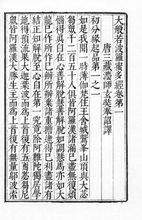 大般若波羅蜜多經卷第一
唐三藏法師玄奘奉詔譯
初分緣起品第一之一
如是我聞一時薄伽梵住王舍城鷲峯山頂與大苾
芻眾千二百五十人俱皆阿羅漢諸漏已盡無復煩
惱得真自在心善解脫慧善解脫如調慧馬亦如大
龍已作所作已辦所辦棄諸重擔逮得己利盡諸有
結正知解脫至心自在第一究竟除阿難陀獨居學
地得預流果大迦葉波而為上首復有五百苾芻尼
眾皆阿羅漢大勝生主而為上首復有無量鄔波索